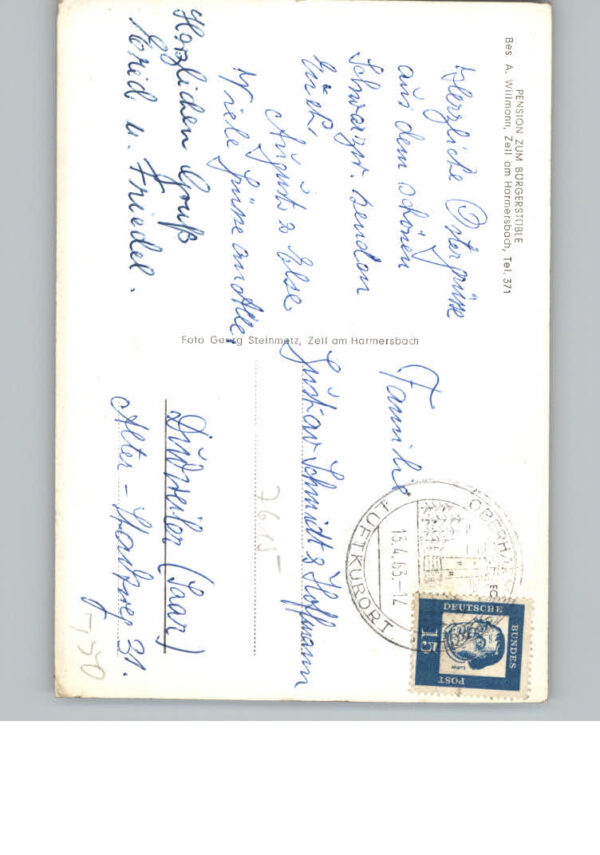 PENSION ZUM BÜRGERSTÜBLE
Bes. A. Willmann, Zell am Harmersbach, Tel. 371
Herzliche Ostergrüsse
aus dem schönen
Schwarzw. senden
Euch
August & Else
Viele Grüsse an Alle,
Herzlichen Gruß
u. Friedel.
Foto Georg Steinmetz, Zell am Harmersbach
Familie
Gustav Schmidt & Hoffmann
Dudweiler (Saar)
Alter - 31.
7615-
-,50
OBERHA
LUFTKURORT
13.4.63.-14
DEUTSCHE BUNDES
POST
15
Luther